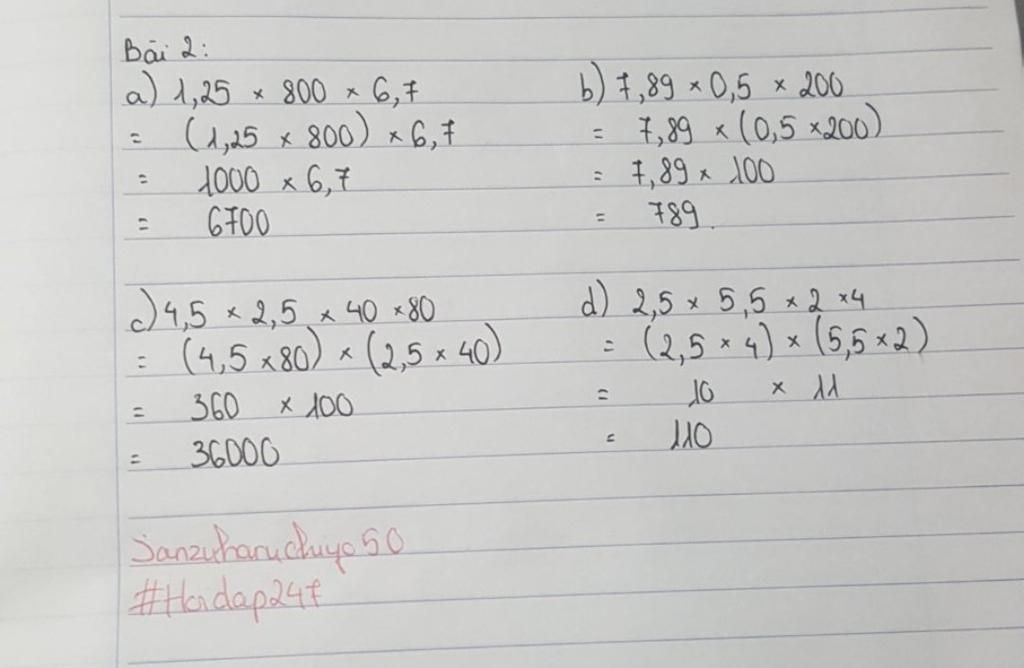 Bài 2:
a) 1,25 × 800 × 6,7
= (1,25 × 800) × 6,7
= 1000 × 6,7
= 6700
b) 7,89 × 0,5 × 200
= 7,89 × (0,5 × 200)
= 7,89 × 100
= 789.
c) 4,5 × 2,5 × 40 × 80
= (4,5 × 80) × (2,5 × 40)
= 360 × 100
= 36000
d) 2,5 × 5,5 × 2 × 4
= (2,5 × 4) × (5,5 × 2)
= 10 × 11
= 110
Sanzuharuchiyo50
#Hoidap247